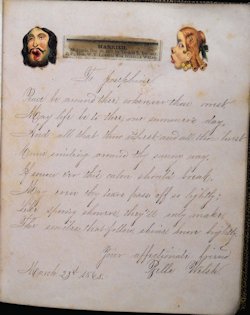 MARRIED.
To Josephine
Peace be around thee wherever thou rovest
May life be to thee one summer's day,
And all that thou blest and all thou lovest
Come smiling around thy sunny way,
If sorrow e'er this calm should break,
May even thy tears pass off so lightly;
Like spring showers they'll only make,
The smiles that follow shine more brightly
Your affectionate friend
March 23d Belle Walsh